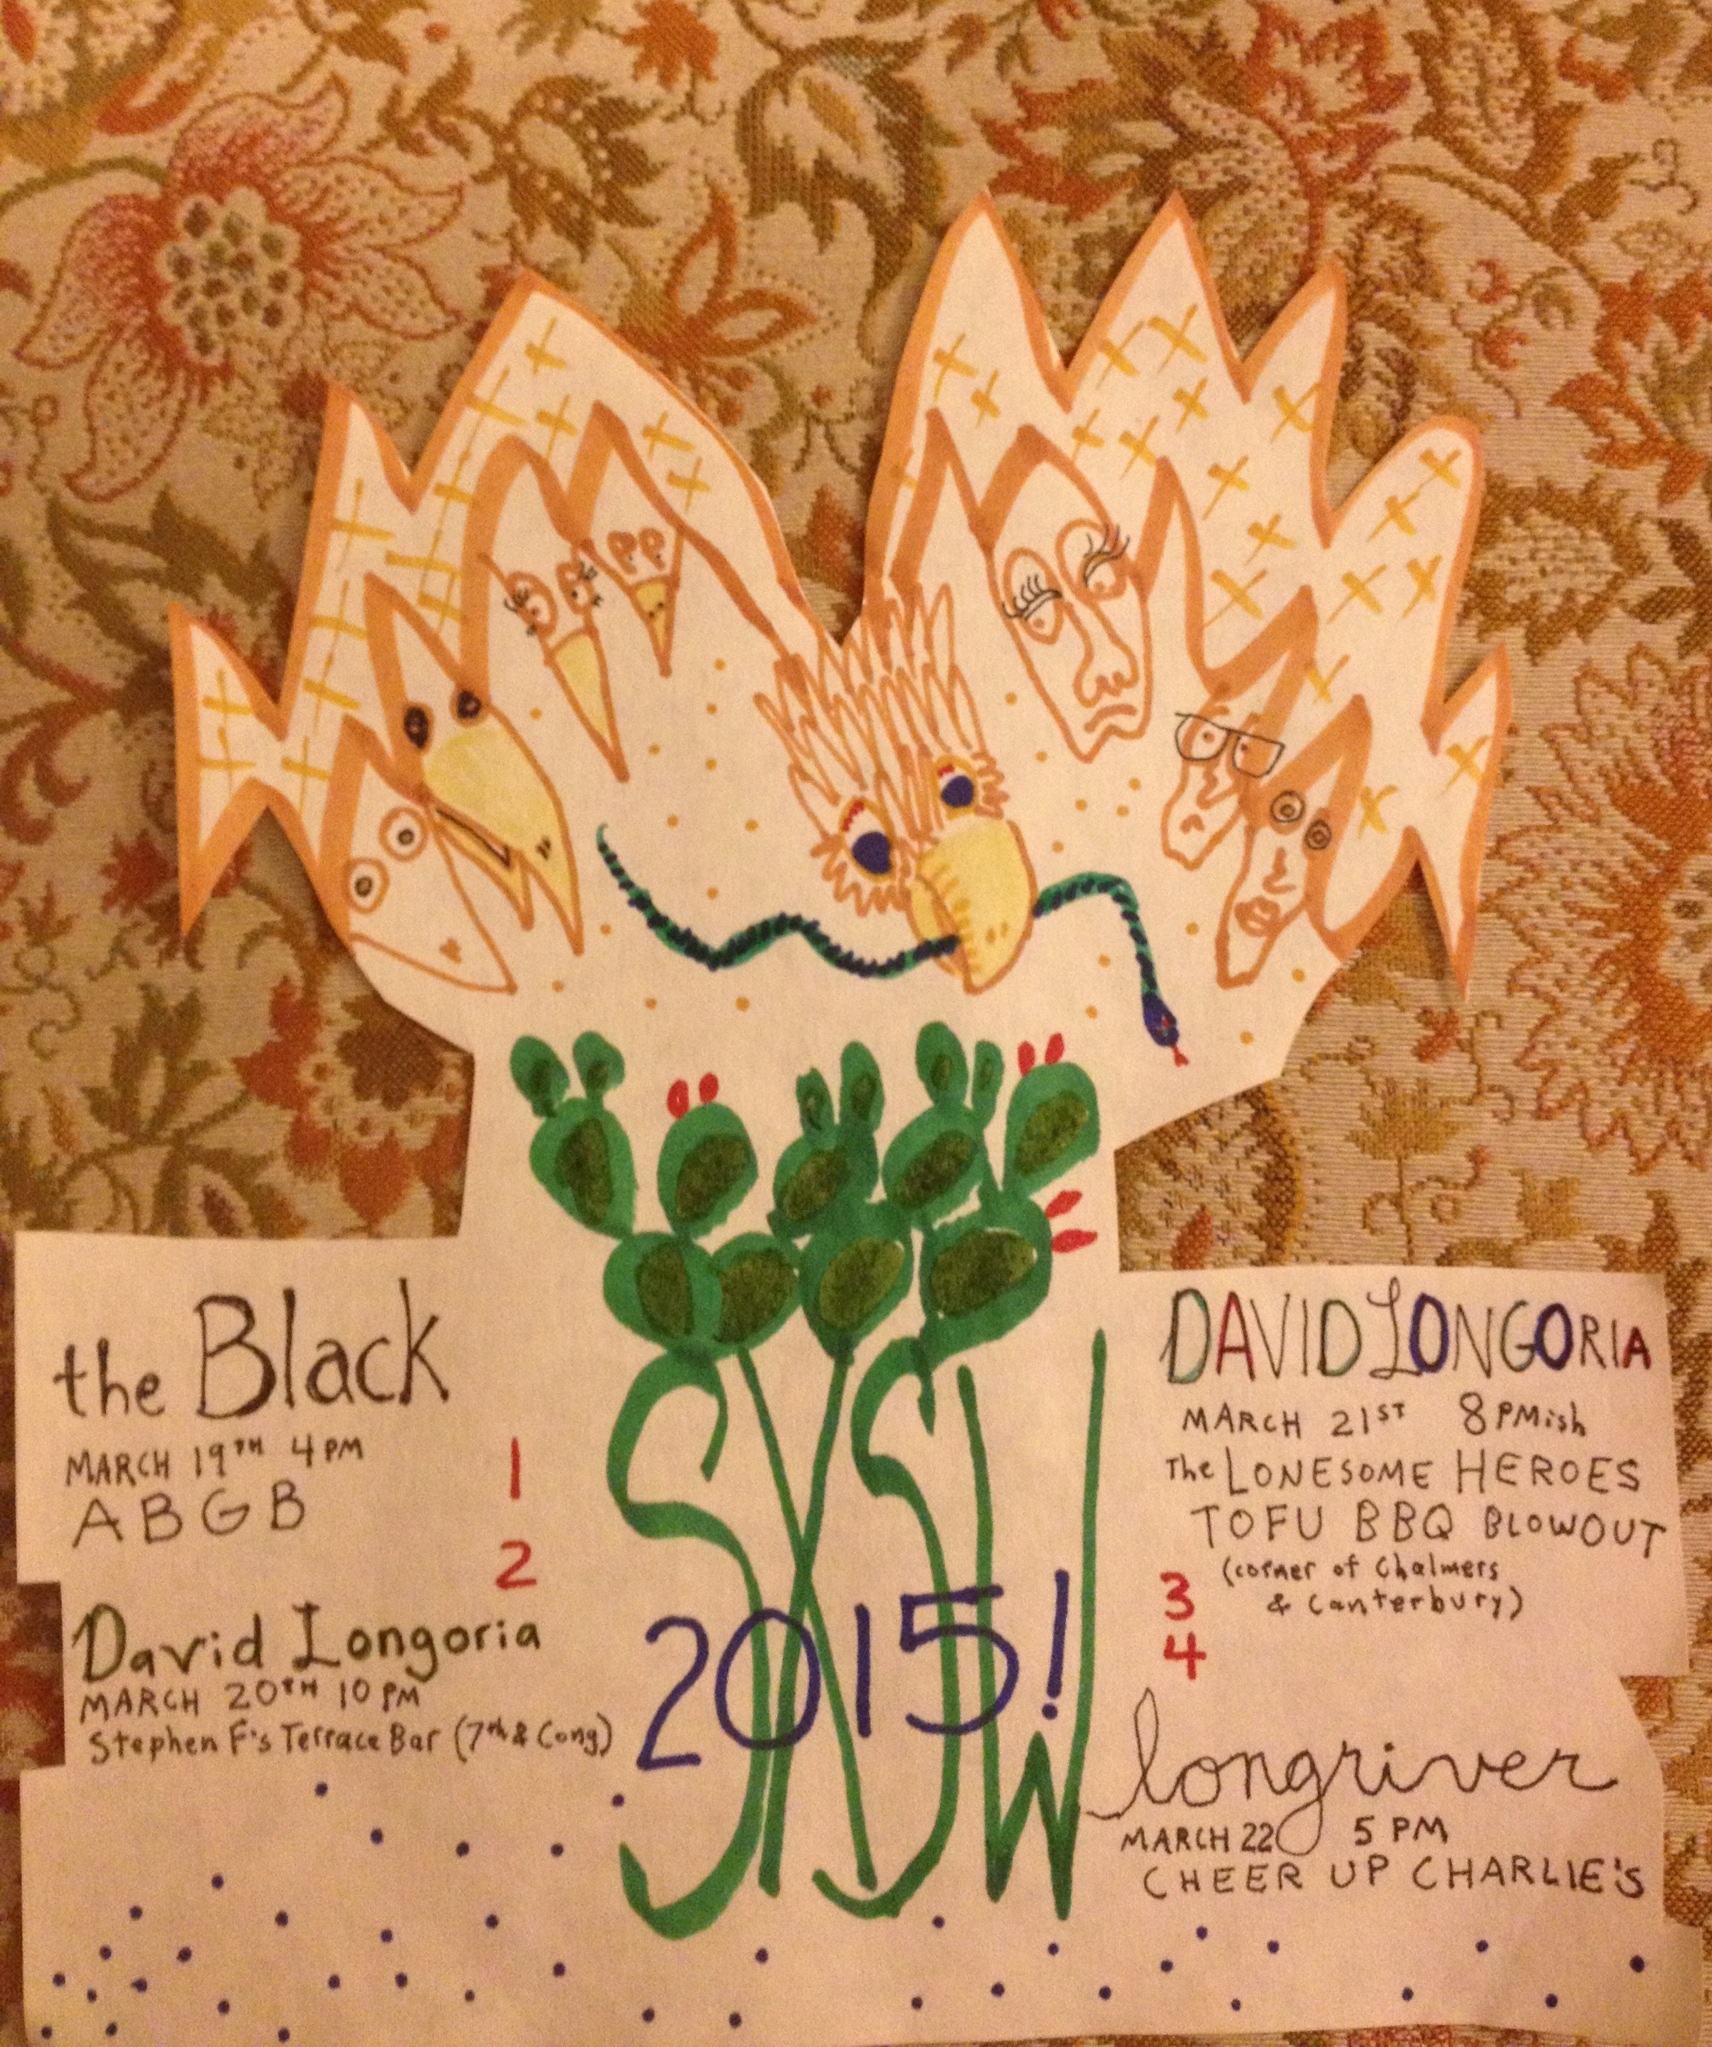 the Black
MARCH 19TH 4 PM
ABGB
1
2
David Longoria
MARCH 20TH 10 PM
Stephen F's Terrace Bar (7th & Cong)
SXSW
2015!
DAVID LONGORIA
MARCH 21ST 8PMish
The LONESOME HEROES
TOFU BBQ BLOWOUT
(corner of Chalmers
& Canterbury)
3
4
longriver
MARCH 22 5 PM
CHEER UP CHARLIE'S